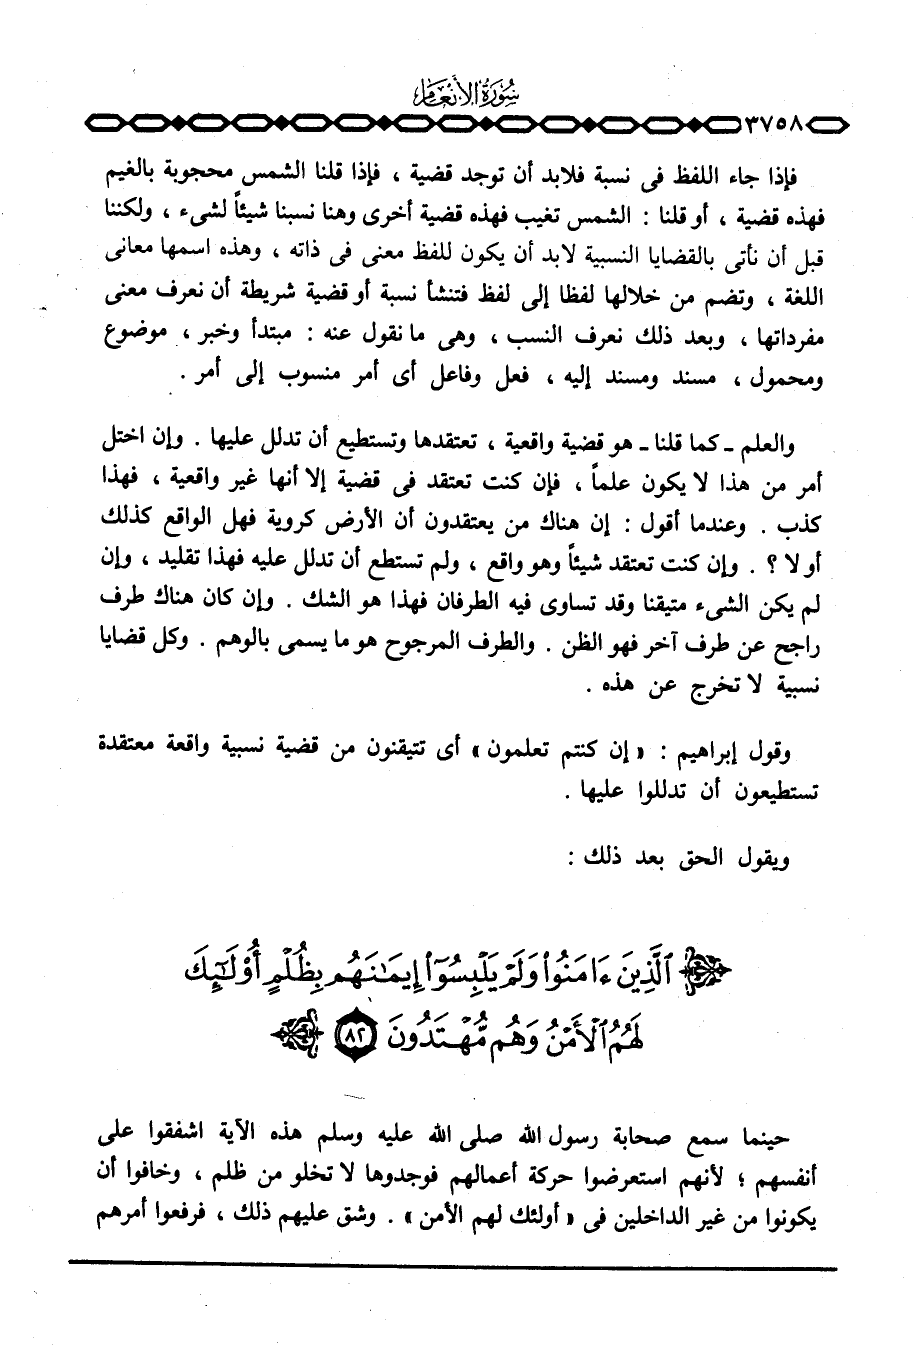 سُورَةُ الأَنعَام
٣٧٥٨
فإذا جاء اللفظ فى نسبة فلابد أن توجد قضية ، فإذا قلنا الشمس محجوبة بالغيم
فهذه قضية ، أو قلنا : الشمس تغيب فهذه قضية أخرى وهنا نسبنا شيئاً لشىء ، ولكننا
قبل أن نأتى بالقضايا النسبية لابد أن يكون للفظ معنى فى ذاته ، وهذه اسمها معانى
اللغة ، وتضم من خلالها لفظا إلى لفظ فتنشأ نسبة أو قضية شريطة أن نعرف معنى
مفرداتها ، وبعد ذلك نعرف النسب ، وهى ما نقول عنه : مبتدأ وخبر ، موضوع
ومحمول ، مسند ومسند إليه ، فعل وفاعل أى أمر منسوب إلى أمر .
والعلم ـ كما قلنا ـ هو قضية واقعية ، تعتقدها وتستطيع أن تدلل عليها . وإن اختل
أمر من هذا لا يكون علماً ، فإن كنت تعتقد فى قضية إلا أنها غير واقعية ، فهذا
كذب . وعندما أقول : إن هناك من يعتقدون أن الأرض كروية فهل الواقع كذلك
أو لا ؟ . وإن كنت تعتقد شيئاً وهو واقع ، ولم تستطع أن تدلل عليه فهذا تقليد ، وإن
لم يكن الشىء متيقنا وقد تساوى فيه الطرفان فهذا هو الشك . وإن كان هناك طرف
راجح عن طرف آخر فهو الظن . والطرف المرجوح هو ما يسمى بالوهم . وكل قضايا
نسبية لا تخرج عن هذه .
وقول إبراهيم : « إن كنتم تعلمون » أى تتيقنون من قضية نسبية واقعة معتقدة
تستطيعون أن تدللوا عليها .
ويقول الحق بعد ذلك :
ٱلَّذِينَ ءَامَنُوا۟ وَلَمْ يَلْبِسُوٓا۟ إِيمَـٰنَهُم بِظُلْمٍ أُو۟لَـٰٓئِكَ
لَهُمُ ٱلْأَمْنُ وَهُم مُّهْتَدُونَ ٨٢
حينما سمع صحابة رسول الله صلى الله عليه وسلم هذه الآية اشفقوا على
أنفسهم ؛ لأنهم استعرضوا حركة أعمالهم فوجدوها لا تخلو من ظلم ، وخافوا أن
يكونوا من غير الداخلين فى « أولئك لهم الأمن » . وشق عليهم ذلك ، فرفعوا أمرهم